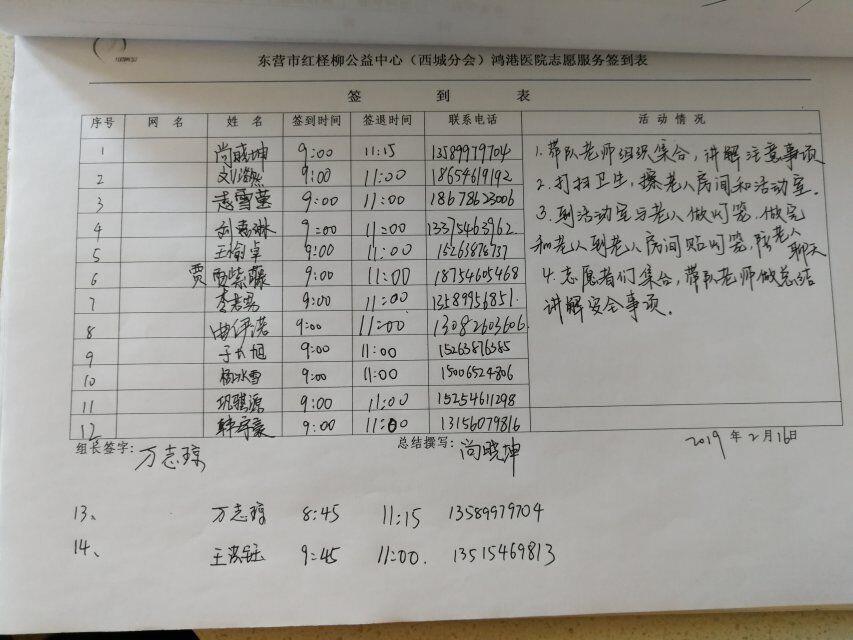 东营市红柽柳公益中心（西城分会）鸿港医院志愿服务签到表
签 到 表
序号 网 名 姓 名 签到时间 签退时间 联系电话 活 动 情 况
1 尚晓坤 9:00 11:15 13589979704
2 刘浩然 9:00 11:00 18654619192
3 9:00 11:00 18678623006
4 9:00 11:00 13375463962
5 王愉卓 9:00 11:00
6 贾 贾紫藤 9:00 11:00 18754605468
7 李若男 9:00 11:00 13589956851.
8 曲伊诺 9:00 11:00 13082603606.
9 9:00 11:00 15263876385
10 杨冰雪 9:00 11:00 15006524806
11 巩骐源 9:00 11:00 15254611298
12 9:00 11:00 13156079816
1.带队老师组织集合，讲解注意事项
2.打扫卫生，擦老人房间和活动室.
3.到活动室与老人做灯笼，做完
和老人到老人房间贴灯笼，陪老人
聊天
4.志愿者们集合，带队老师做总结
讲解安全事项.
组长签字：万志琼 总结撰写：尚晓坤 2019年2月16日
13、 万志琼 8:45 11:15 13589979704
14、 9:45 11:00. 13515469813